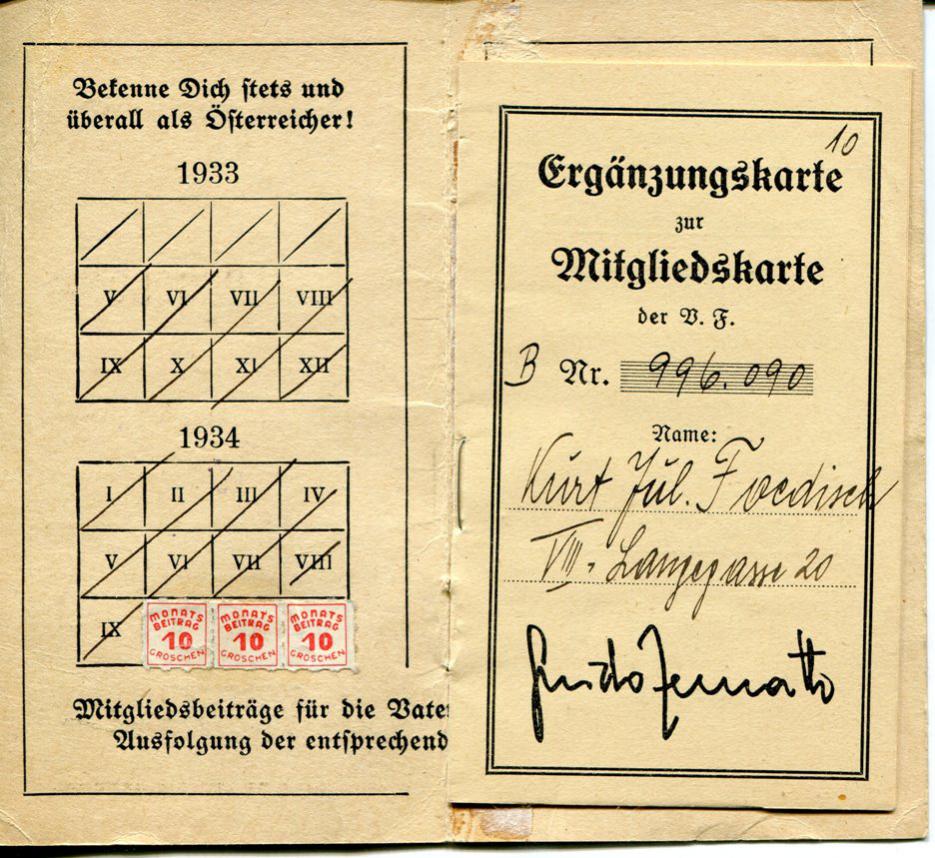 Bekenne Dich stets und
überall als Österreicher!
1933
V VI VII VIII
IX X XI XII
1934
I II III IV
V VI VII VIII
IX MONATS BEITRAG 10 GROSCHEN MONATS BEITRAG 10 GROSCHEN MONATS BEITRAG 10 GROSCHEN
Mitgliedsbeiträge für die Vate
Ausfolgung der entsprechend
10
Ergänzungskarte
zur
Mitgliedskarte
der V. F.
B Nr. 996.090
Name:
Kurt Jul. Foedisch
VIII. Langegasse 20
Guido Zernatto